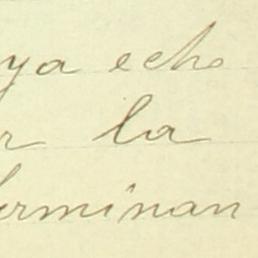 ya echo
r la
erminan